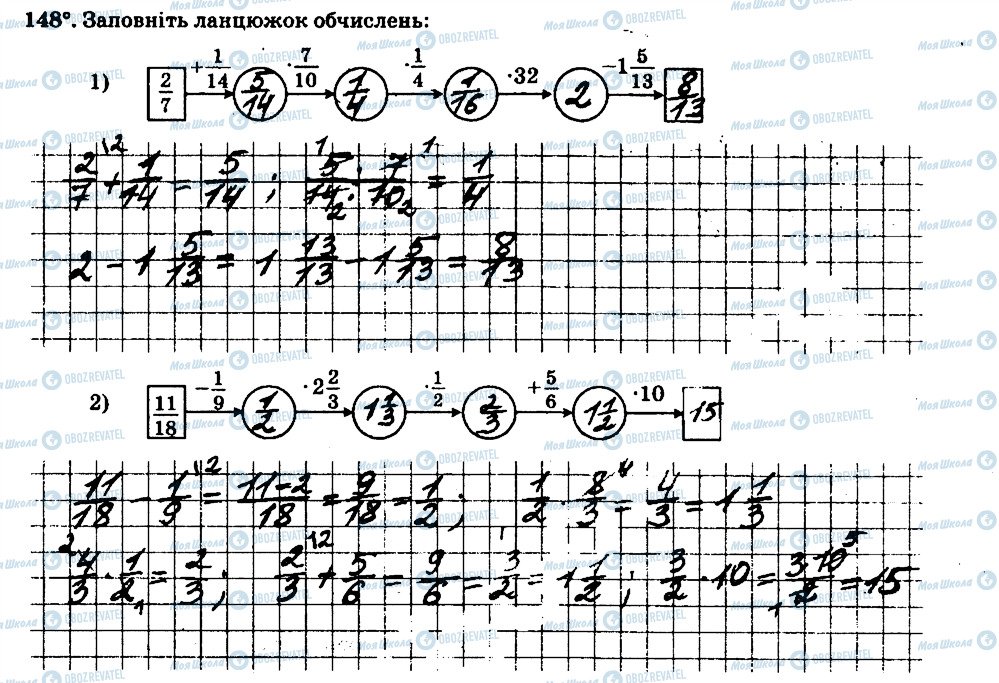 148°. Заповніть ланцюжок обчислень:
1) 2/7 +1/14 5/14 ·7/10 1/4 ·1/4 1/16 ·32 2 −1 5/13 8/13
2/7 + 1/14 = 5/14 ; 5/14 · 7/10 = 1/4
2 − 1 5/13 = 1 13/13 − 1 5/13 = 8/13
2) 11/18 −1/9 1/2 ·2 2/3 1 1/3 ·1/2 2/3 +5/6 1 1/2 ·10 15
11/18 − 1/9 = 11−2/18 = 9/18 = 1/2 ; 1/2 · 8/3 = 4/3 = 1 1/3
4/3 · 1/2 = 2/3 ; 2/3 + 5/6 = 9/6 = 3/2 = 1 1/2 ; 3/2 · 10 = 3·10/2 = 15